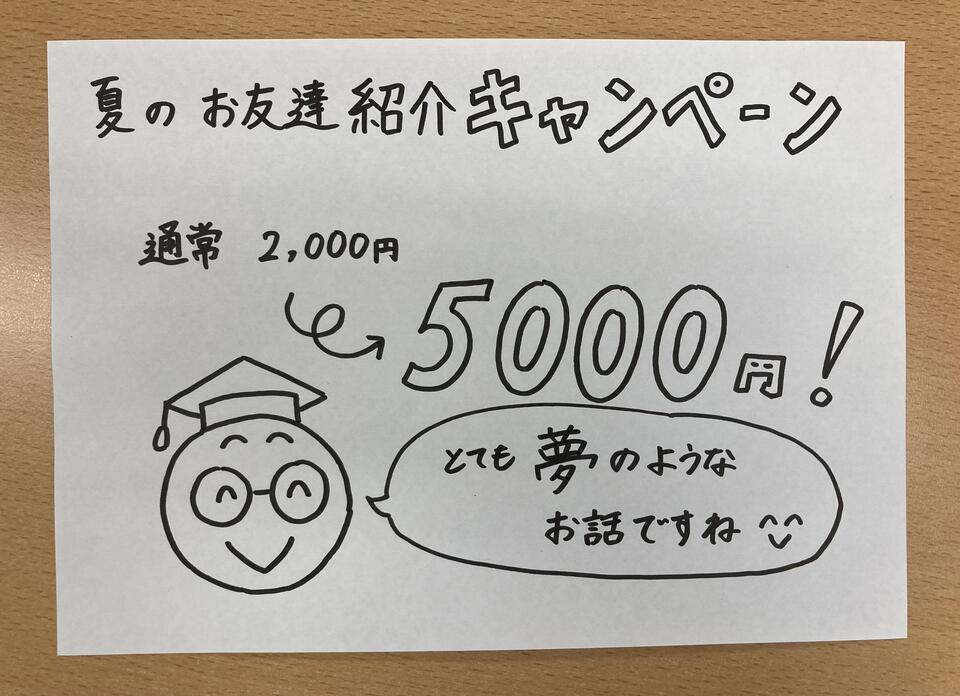 夏の お友達紹介キャンペーン
通常 2,000円
5000円!
とても夢のような
お話ですね